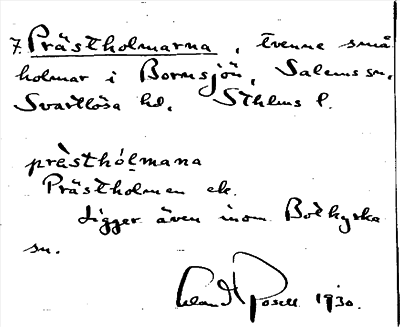 7. Prästholmarna, tvenne små
holmar i Bornsjön, Salems sn,
Svartlösa hd, Sthlms l.
prästhólmana
Prästholmen ek.
Ligger även inom Botkyrka
sn.
1930.